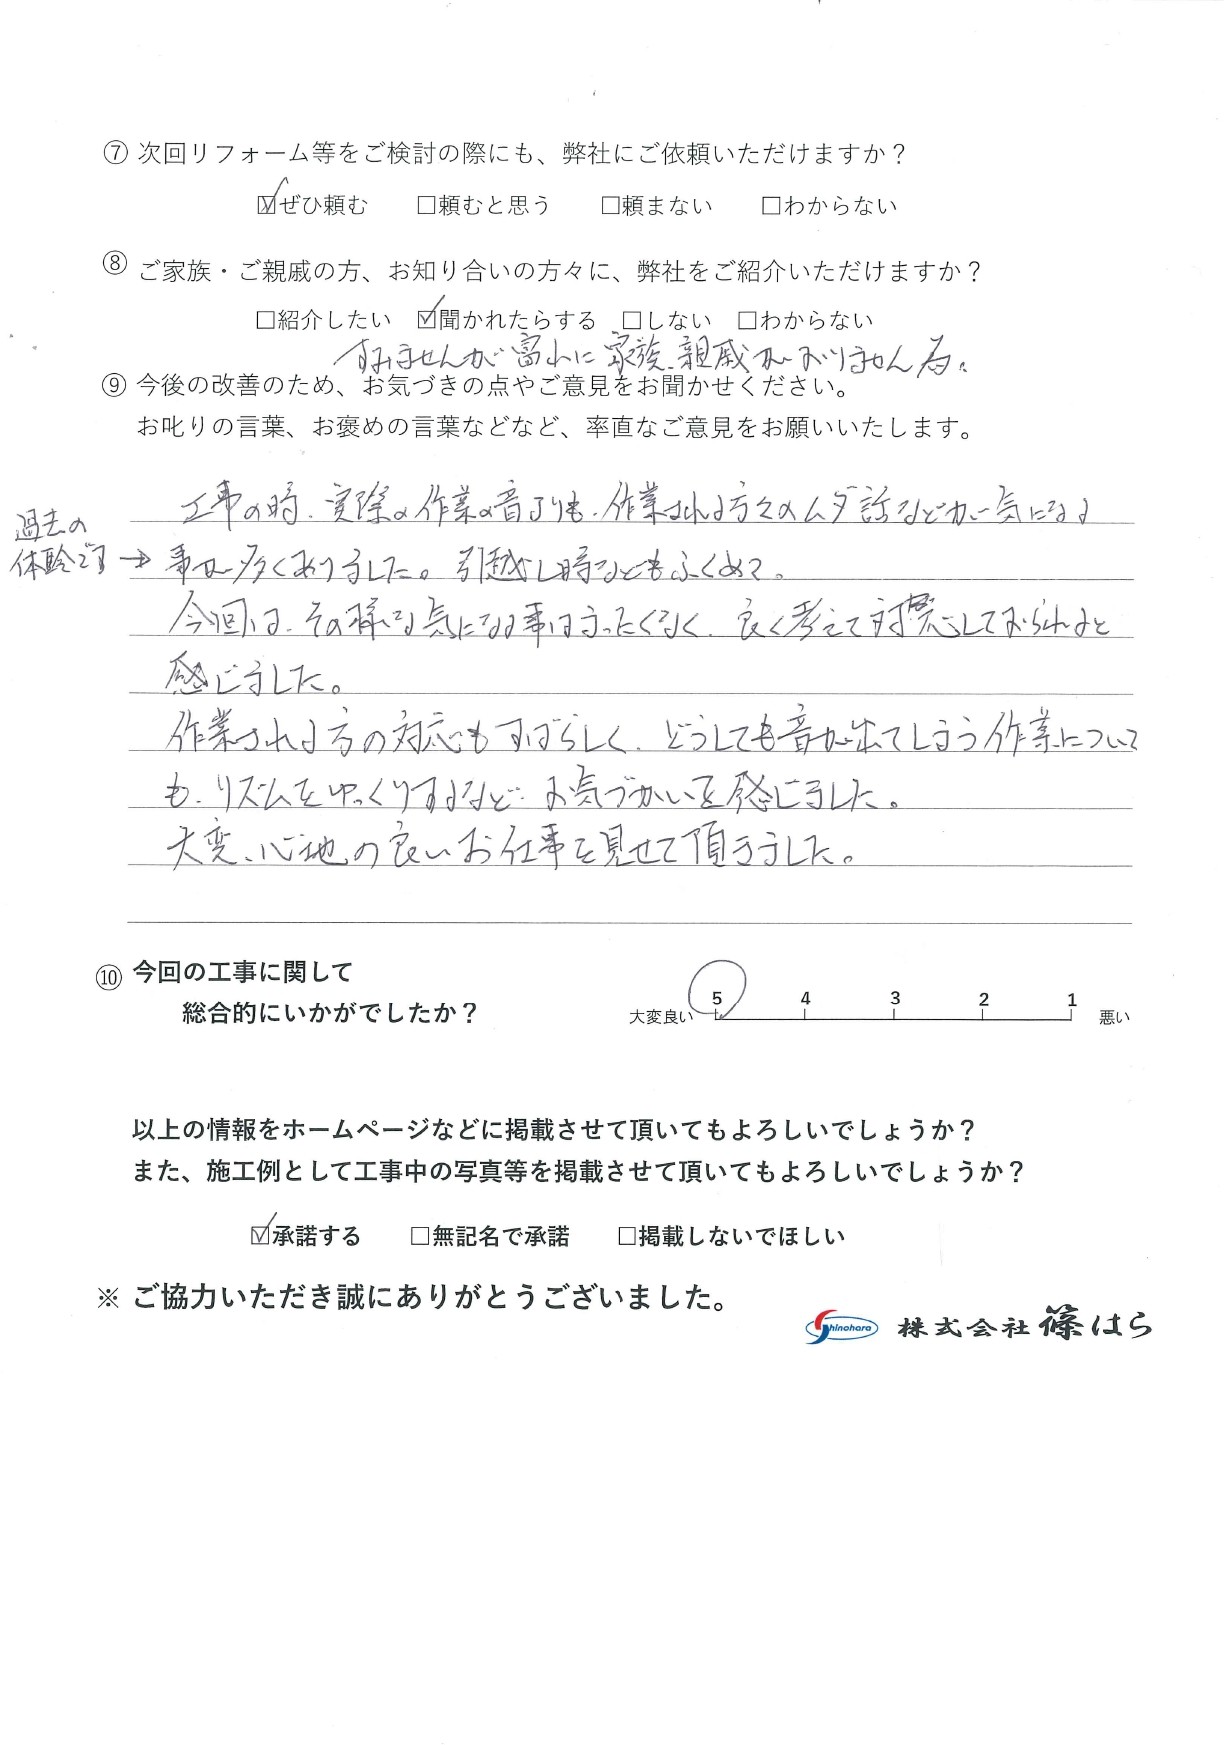 ⑦ 次回リフォーム等をご検討の際にも、弊社にご依頼いただけますか？
☑ぜひ頼む □頼むと思う □頼まない □わからない
⑧ ご家族・ご親戚の方、お知り合いの方々に、弊社をご紹介いただけますか？
□紹介したい ☑聞かれたらする □しない □わからない
すみませんが 家族、親戚がおりません為。
⑨ 今後の改善のため、お気づきの点やご意見をお聞かせください。
お叱りの言葉、お褒めの言葉などなど、率直なご意見をお願いいたします。
工事の時、実際の作業の音よりも、作業される方々のムダ話などが気になる
過去の
体験です→
事が多くありました。引越し時などもふくめて。
今回は、その様な気になる事はまったくなく、良く考えて対応しておられると
感じました。
作業される方の対応もすばらしく、どうしても音が出てしまう作業について
も、リズムをゆっくりするなど、お気づかいを感じました。
大変、心地の良いお仕事を見せて頂きました。
⑩ 今回の工事に関して
総合的にいかがでしたか？
大変良い 5 4 3 2 1 悪い
以上の情報をホームページなどに掲載させて頂いてもよろしいでしょうか？
また、施工例として工事中の写真等を掲載させて頂いてもよろしいでしょうか？
☑承諾する □無記名で承諾 □掲載しないでほしい
※ ご協力いただき誠にありがとうございました。
Shinohara 株式会社 篠はら